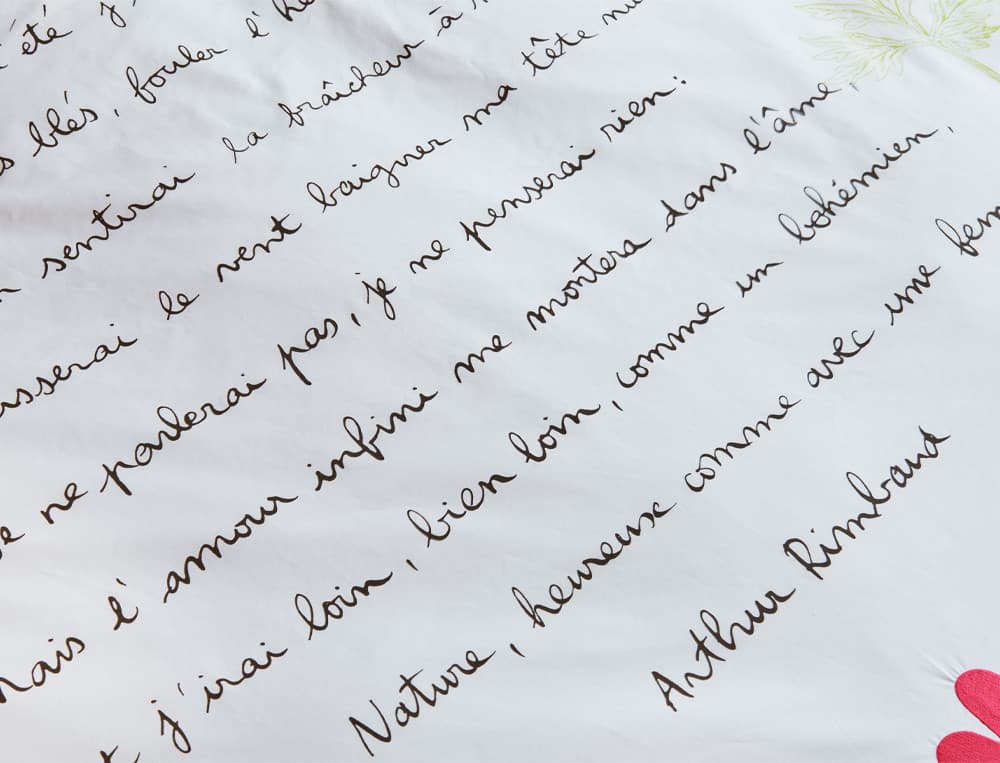 été j
s blés, fouler l'he
sentirai la fraîcheur à
isserai le vent baigner ma tête nu
e ne parlerai pas, je ne penserai rien :
mais l'amour infini me montera dans l'âme,
t j'irai loin, bien loin, comme un bohémien,
Nature, heureux comme avec une fem
Arthur Rimbaud